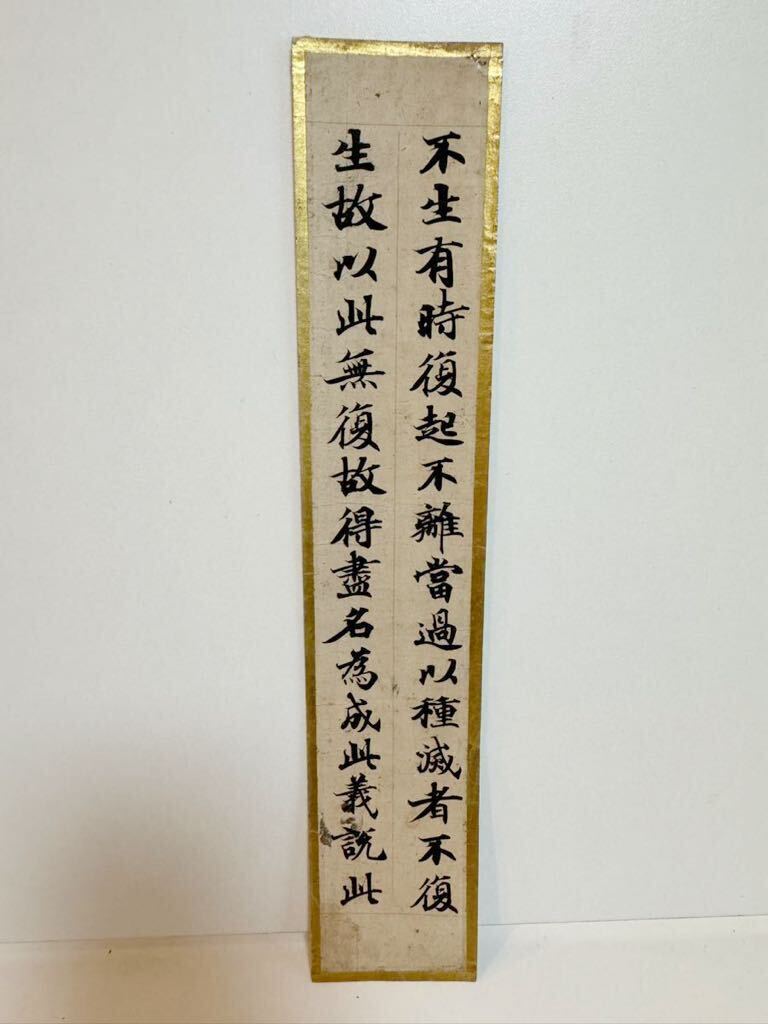 不生有時復起不離當過以種滅者不復
生故以此無復故得盡名為成此義説此